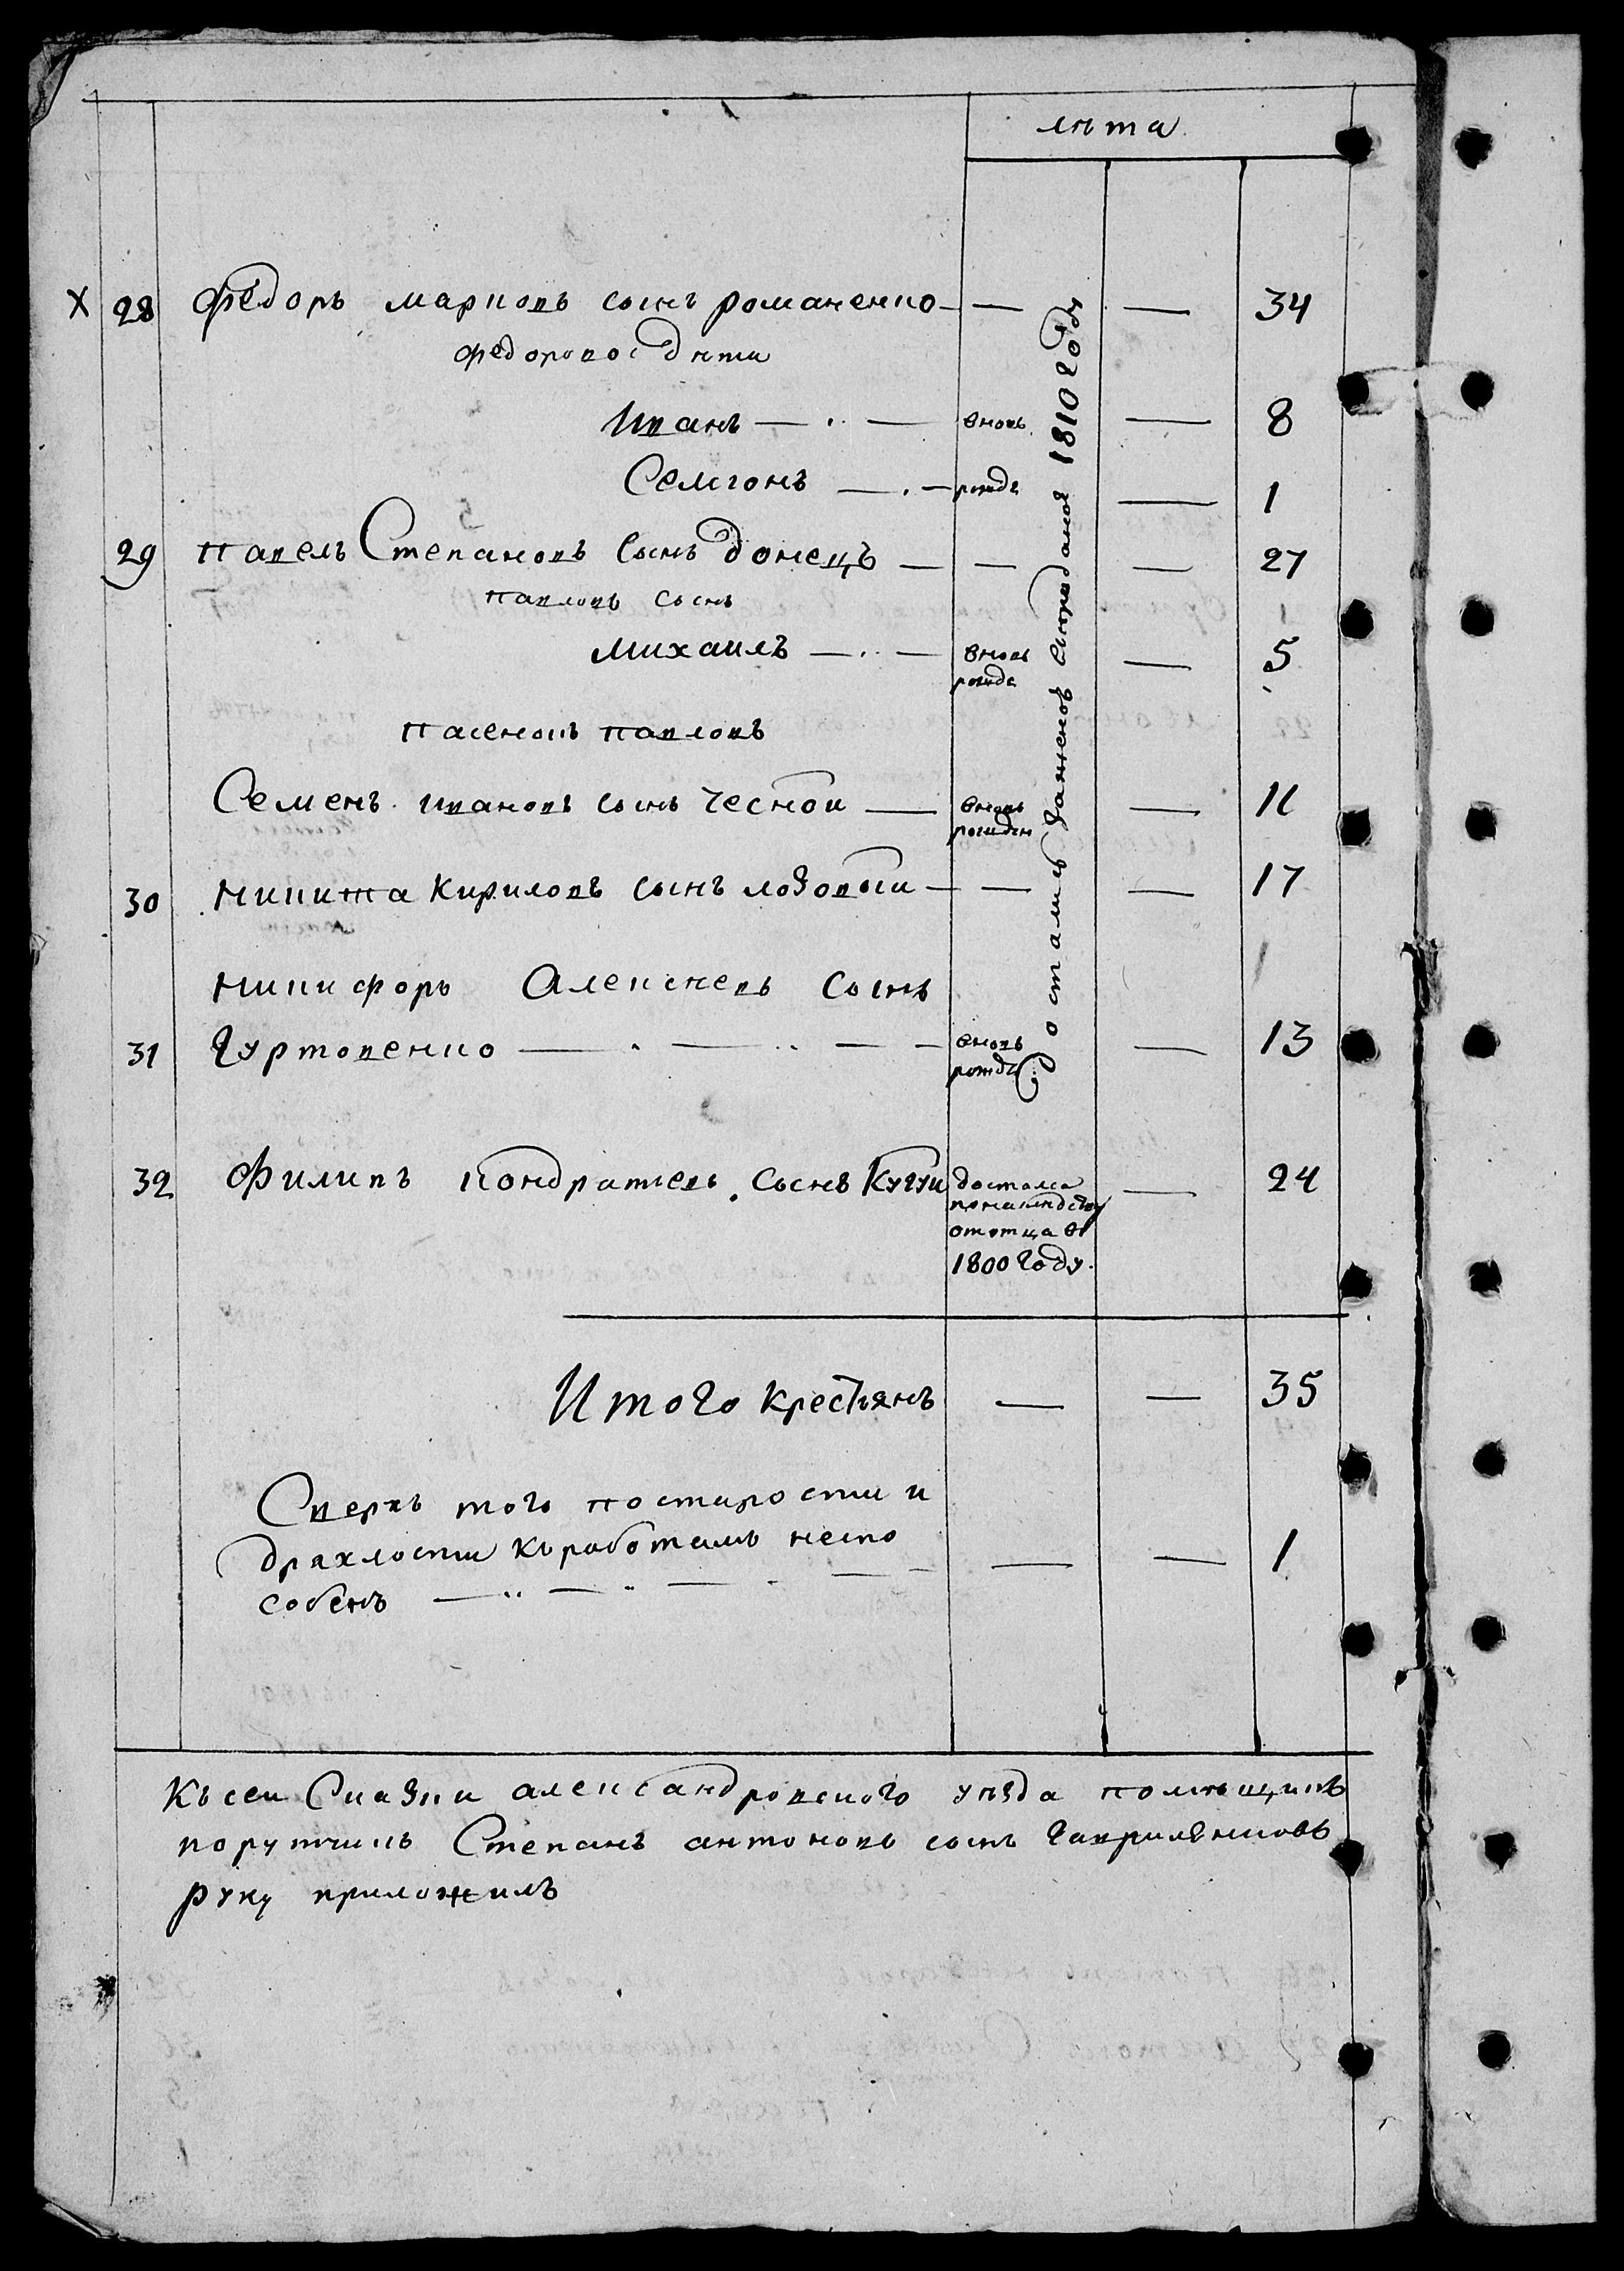 лѣта
х 28 Федоръ марковъ сынъ романенко — — — 34
федоровы дѣти
Иванъ — вновь — 8
Семионъ — рожде — 1
29 павелъ Степановъ сынъ донецъ — — — 27
павловъ сынъ
михаилъ — вновь — 5
рожде
пасенокъ павловъ
Семенъ ивановъ сынъ чесной — вновь — 11
рожден
30 никита Кириловъ сынъ лозовый — — — 17
никифоръ Алексеевъ сынъ
31 Гуртовенко — вновь — 13
рожде
Достались 1810 году
32 Филипъ кондратьевъ сынъ Кугуи достался — 24
понаследству
ототца в
1800 году.
Итого крестьянъ — — 35
Сверхъ того постарости и
драхлости къработамъ неспо
собенъ — — — 1
Къ сеи Сказки александровского уѣзда помѣщикъ
порутчикъ Степанъ антоновъ сынъ Гавриленковъ
руку приложилъ